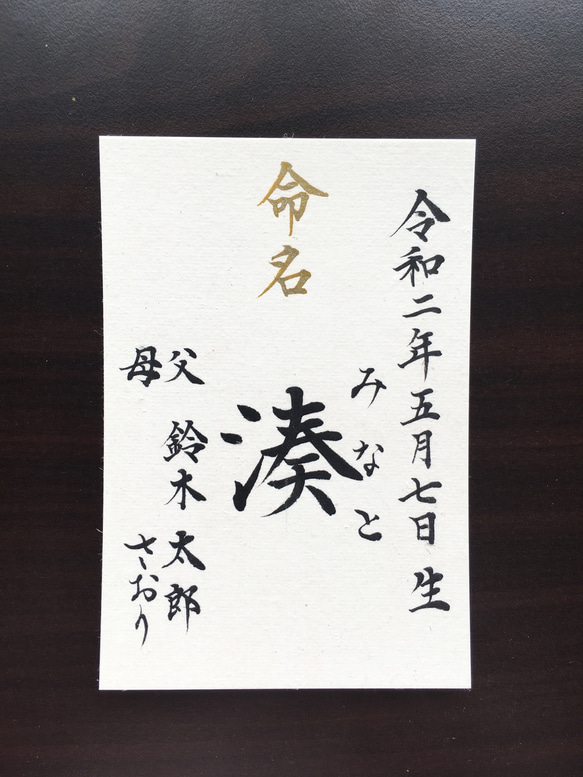 令和二年五月七日 生
命名
みなと
湊
父 鈴木 太郎
母 さおり